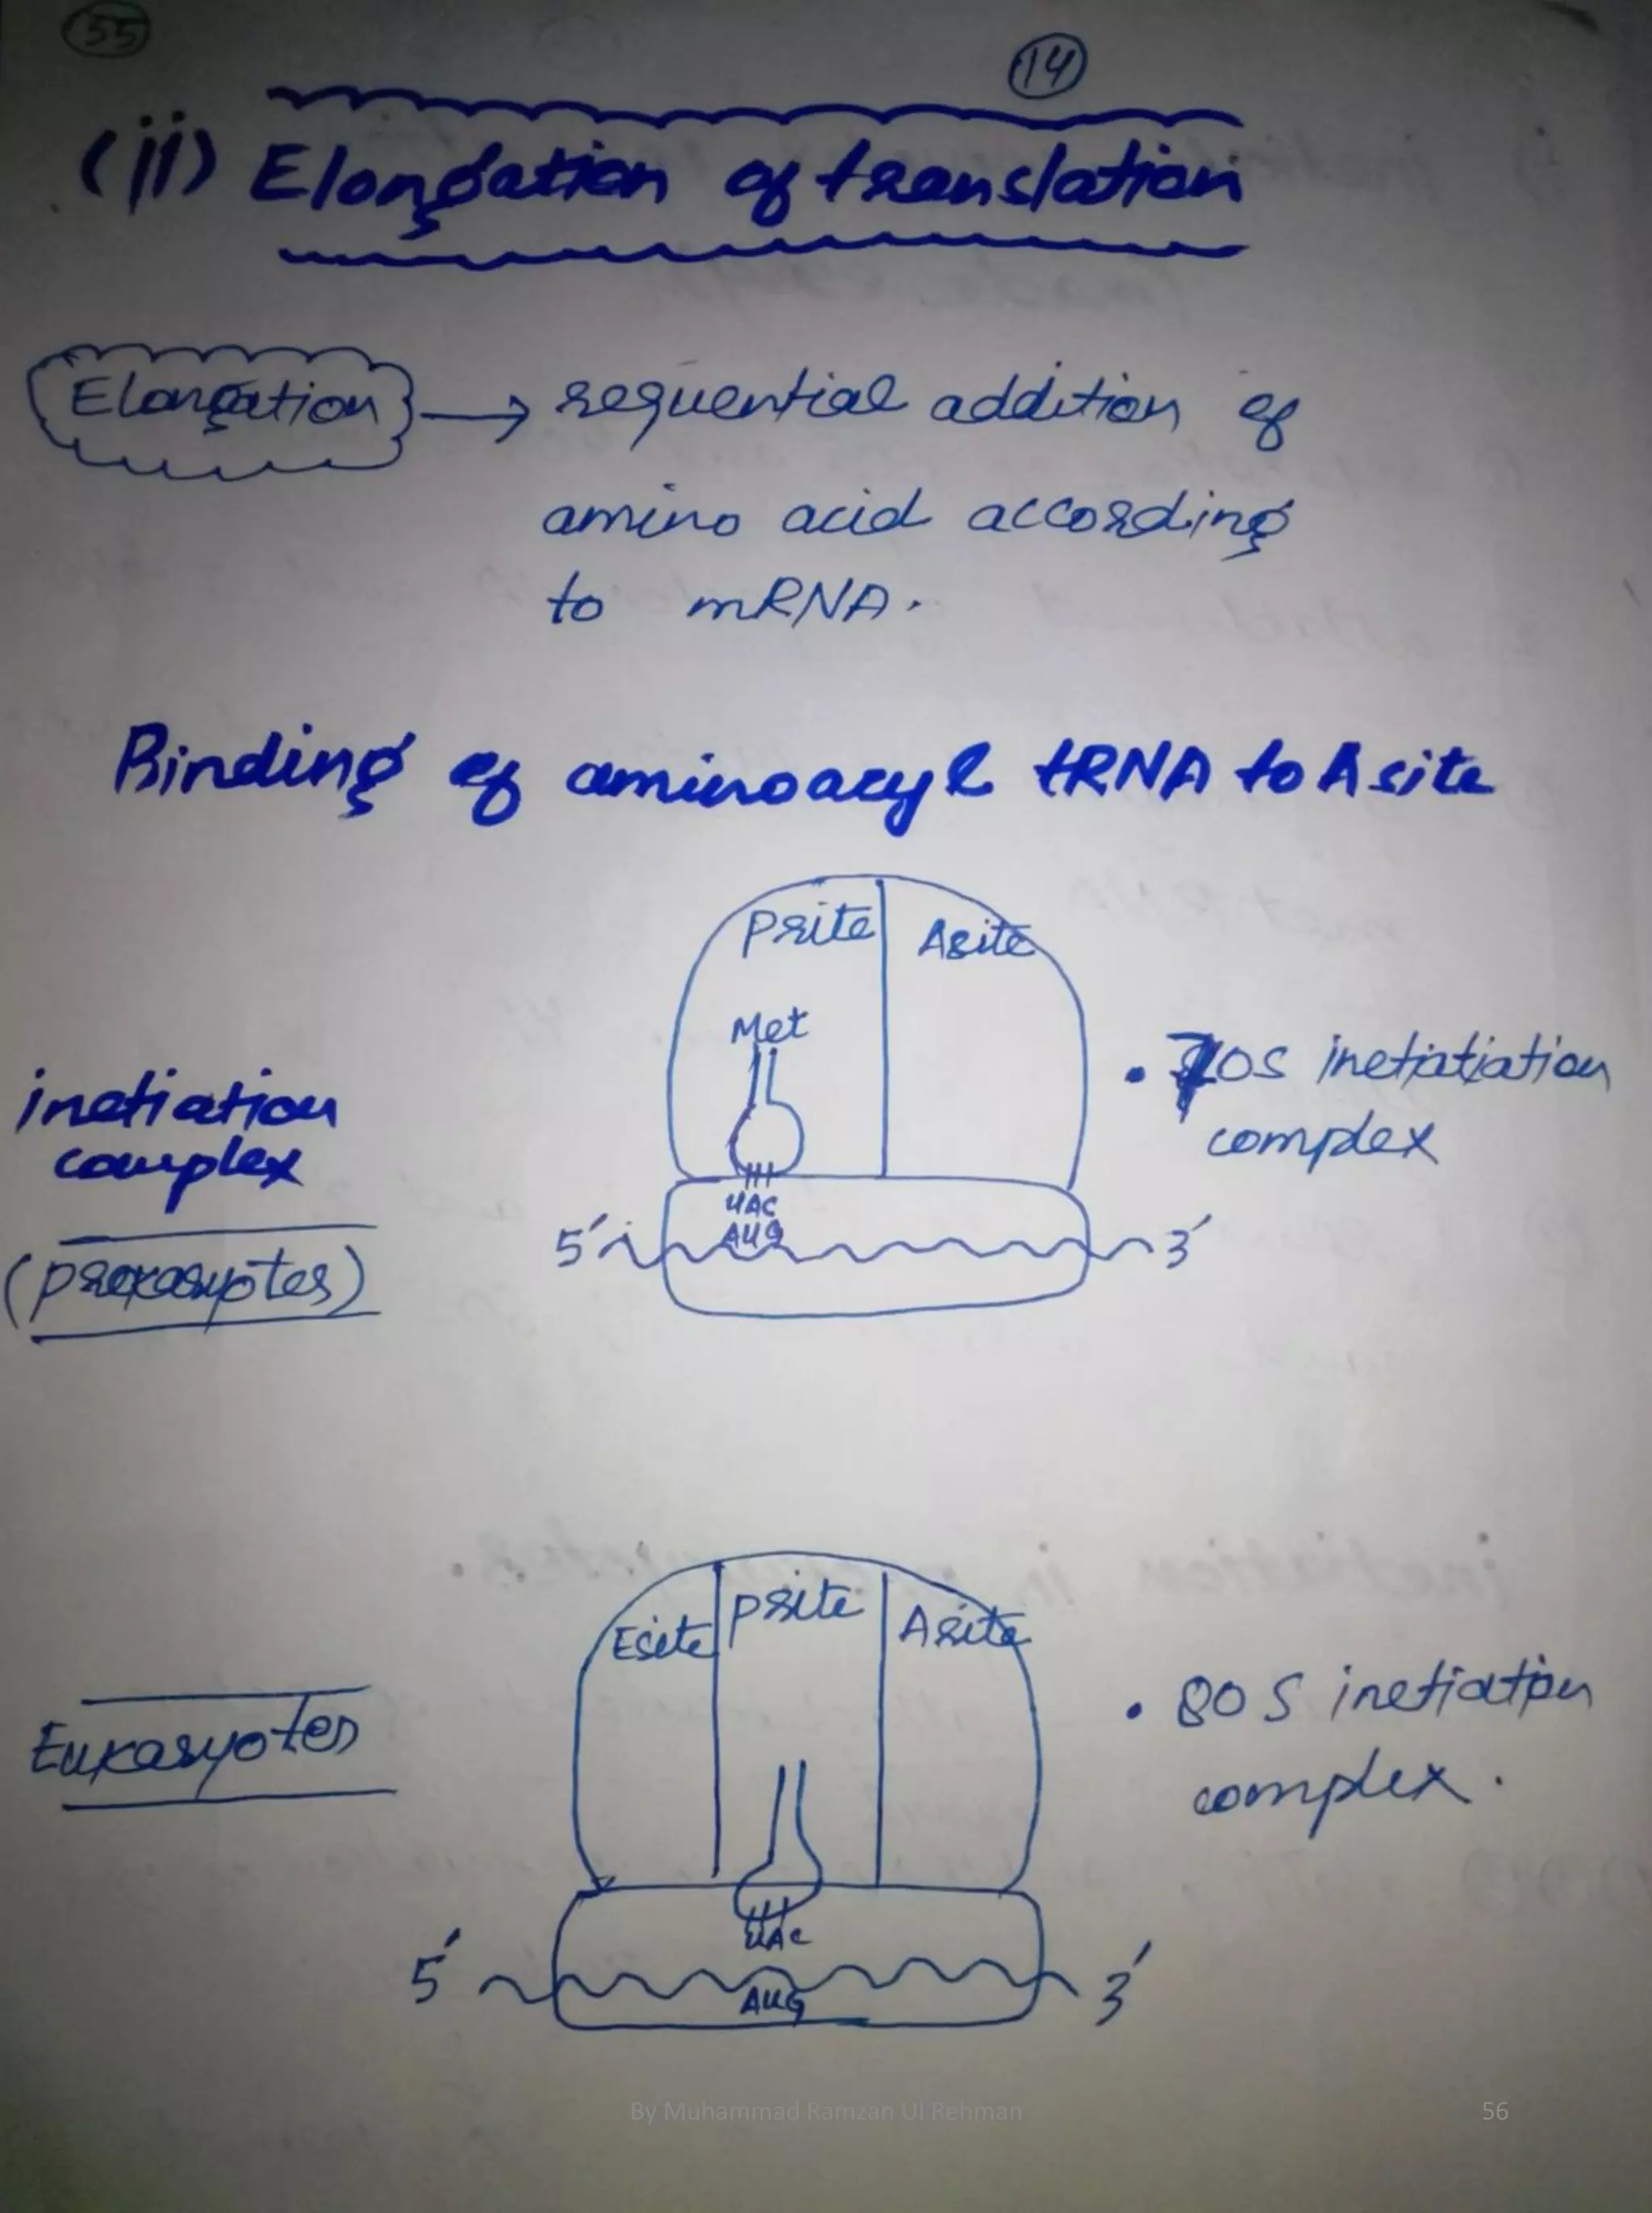 55
14
(ii) Elongation of translation
Elongation → sequential addition of
amino acid according
to mRNA.
Binding of aminoacyl tRNA to A site
P site A site
Met
inetiation
complex
(prokaryotes)
• 70S inetiatiation
complex
UAC
AUG
5' 3'
E site P site A site
Eukaryotes
• 80 S inetiation
complex.
UAC
5' 3'
AUG
By Muhammad Ramzan Ul Rehman 56